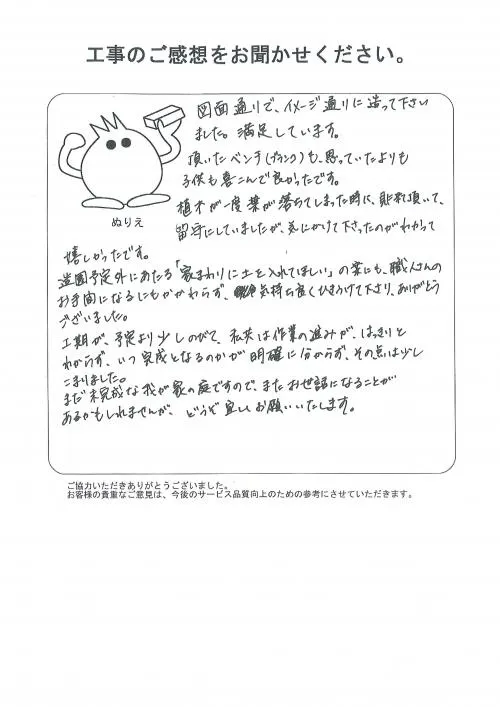 工事のご感想をお聞かせください。
図面通りで、イメージ通りに造って下さい
ました。満足しています。
頂いたベンチ(ブランコ)も、思っていたよりも
子供も喜こんで良かったです。
植木が一度葉が落ちてしまった時に、来て頂いて、
留守にしていましたが、気にかけて下さったのがわかって
ぬりえ
嬉しかったです。
造園予定外にあたる「家まわりに土を入れてほしい」の案にも、職人さんの
お手間になるにもかかわらず、気持ち良くひきうけて下さり、ありがとう
ございました。
工期が、予定より少しのびて、私共は作業の進みが、はっきりと
わからず、いつ完成となるのかが明確に分からず、その点は少し
こまりました。
まだ未完成な我が家の庭ですので、またお世話になることが
あるかもしれませんが、どうぞ宜しくお願いいたします。
ご協力いただきありがとうございました。
お客様の貴重なご意見は、今後のサービス品質向上のための参考にさせていただきます。